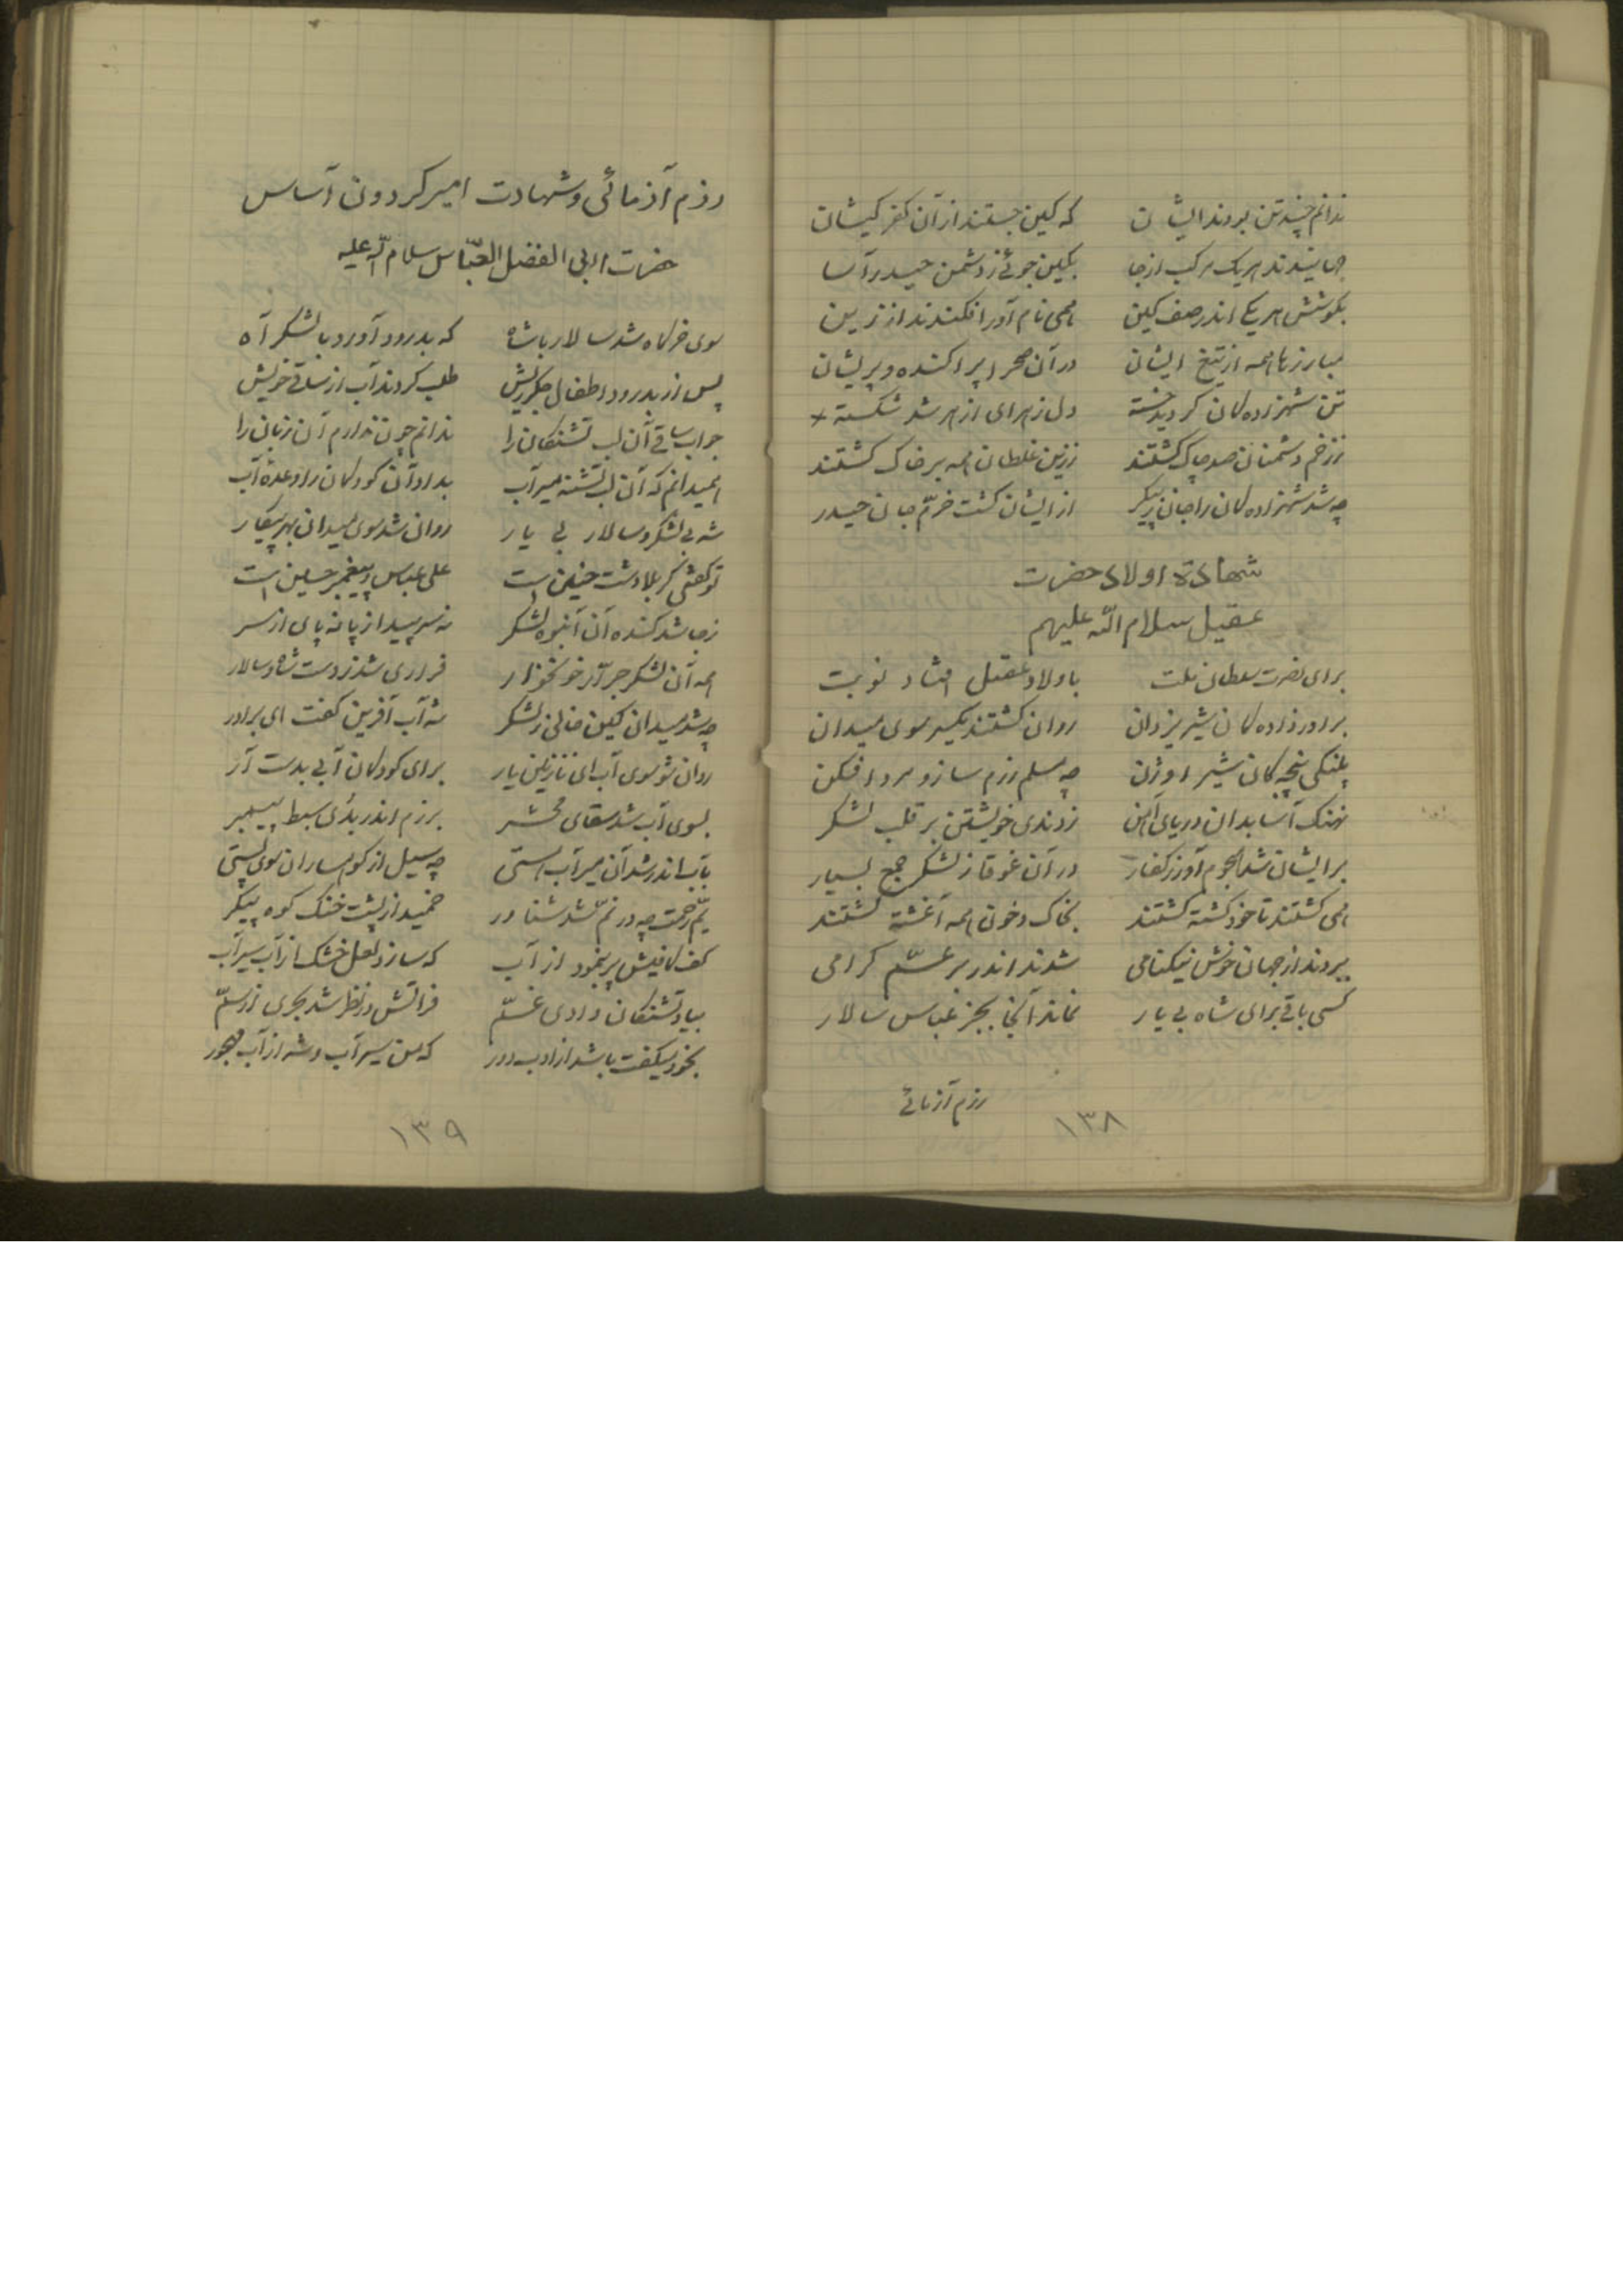 ندانم چند تن بودند ایشان که کین جستند از آن کفر کیشان
جهانیدند هر یک مرکب از جا بکین جوئی ز دشمن حیدر آسا
بکوشش هر یکی اندر صف کین همی نام آور افکندند از زین
مبارزها همه از تیغ ایشان در آن صحرا پراکنده و پریشان
تن شهزاده کان کردید خسته دل زهرای ازهر شد شکسته
ز زخم دشمنان صد چاک کشتند ز زین غلطان همه بر خاک کشتند
چه شد شهزاده کان را جان ز پیکر از ایشان کشت خرّم جان حیدر
شهادة اولاد حضرت
عقیل سلام الله علیهم
برای نصرت سلطان ملت باولاد عقیل افتاد نوبت
برادرزاده کان شیر یزدان روان کشتند یکسر سوی میدان
پلنکی پنجه کان شیر اوژن چه مسلم رزم ساز و مرد افکن
نهنک آسا بدان دریای آهن زدندی خویشتن بر قلب لشکر
بر ایشان شد هجوم آور ز کفار در آن غوغا ز لشکر جمع بسیار
همی کشتند تا خود کشته کشتند بخاک و خون همه آغشته کشتند
ببردند از جهان خوش نیکنامی شدند اندر بر عمّ کرامی
کسی باقی برای شاه بی یار نماند آنجا بجز عباس سالار
رزم آزمائی
۱۳۸
رزم آزمائی و شهادت امیر کردون آساس
حضرت ابی الفضل العبّاس سلام الله علیه
سوی خرکاه شد سالار با شاه که بدرود آورد با لشکر آه
پس از بدرود اطفال جکر ریش طلب کردند آب از ساقی خویش
جواب ساقی آن لب تشنکان را ندانم چون ندارم آن زبان را
همیدانم که آن لب تشنه میر آب بداد آن کودکان را وعدهٔ آب
شه بی لشکر و سالار بی یار روان شد سوی میدان بهر پیکار
تو کفتی کربلا دشت حنین است علی عباس و پیغمبر حسین است
ز جا شد کنده آن انبوه لشکر نه سر پید از پا نه پای از سر
همه آن لشکر جرّار خونخوار فراری شد ز دست شاه و سالار
چه شد میدان کین خالی ز لشکر شه آب آفرین کفت ای برادر
روان شو سوی آب ای نازنین یار برای کودکان آبی بدست آر
بسوی آب شد سقای محشر برزم اندر سبط پیمبر
بآب اندر شد آن میر آب هستی چه سیل از کوهساران سوی پستی
یمّ رحمت چه در نمّ شد شناور خمید از پشت خنک کوه پیکر
کف کافیش پر بنمود از آب که سازد لعل خشک از آب سیرآب
بیاد تشنکان وادی غمّ فراتش در نظر شد بحری از سمّ
بخود میکفت باشد از ادب دور که من سیرآب و شه از آب مهجور
۱۳۹